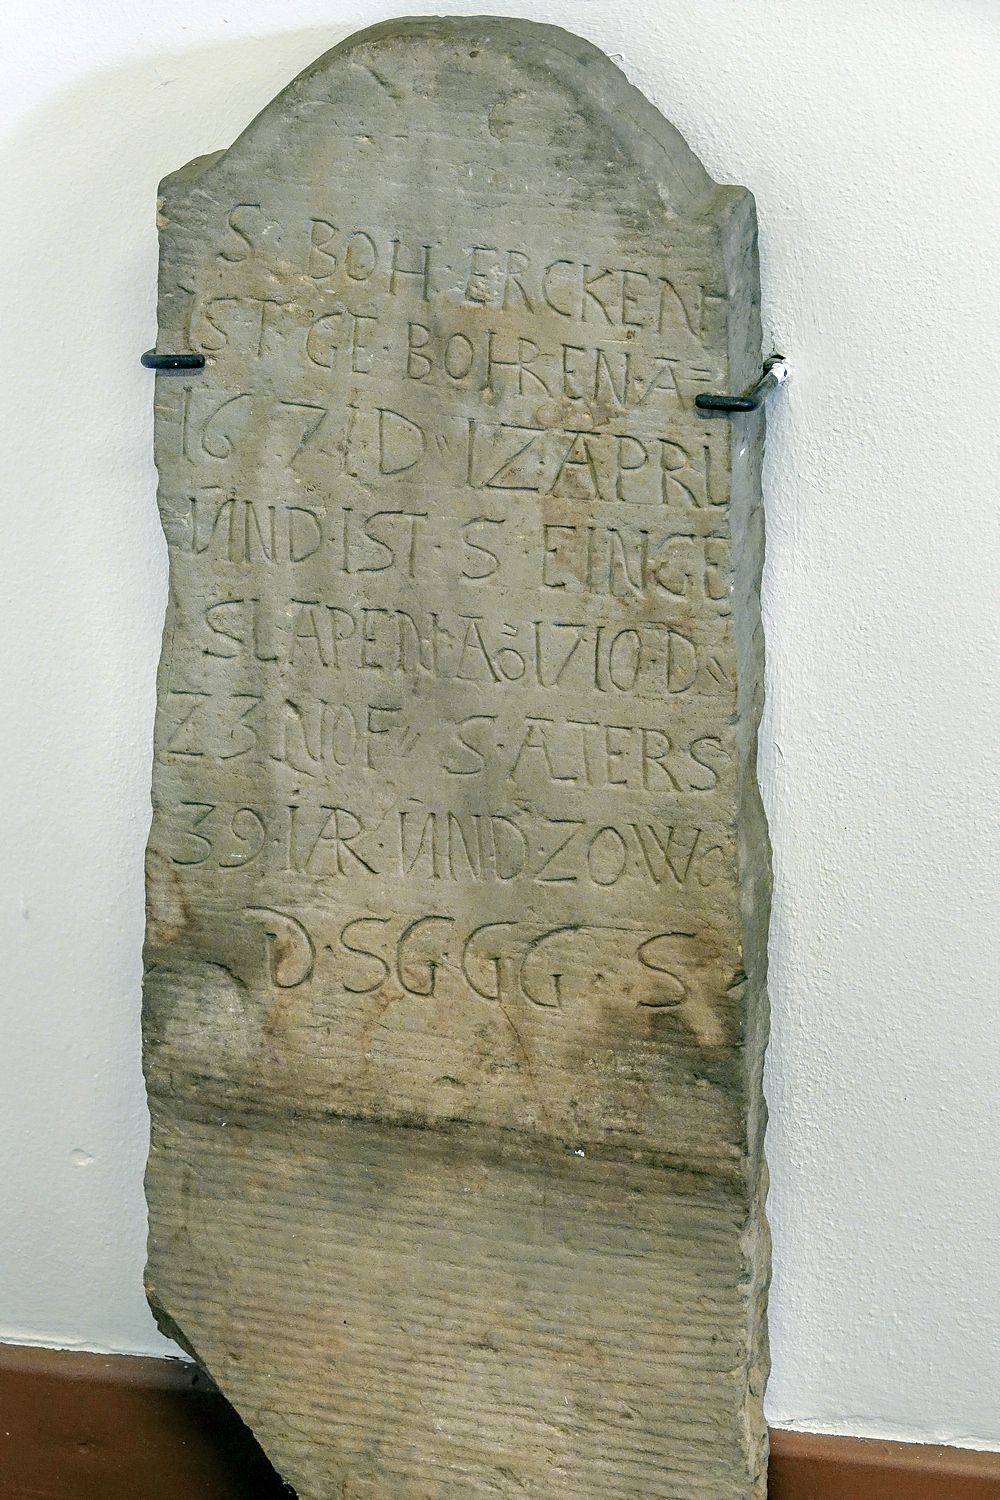 S· BOH·ERCKEN
IST·GE·BOHREN·A=
1671D·12·APRIL
UND·IST·S·EINGE
SLAPEN·Aō1710·D·
23NOF· S·ATERS
39·IAR·UND·20·WO
D·SGGG·S